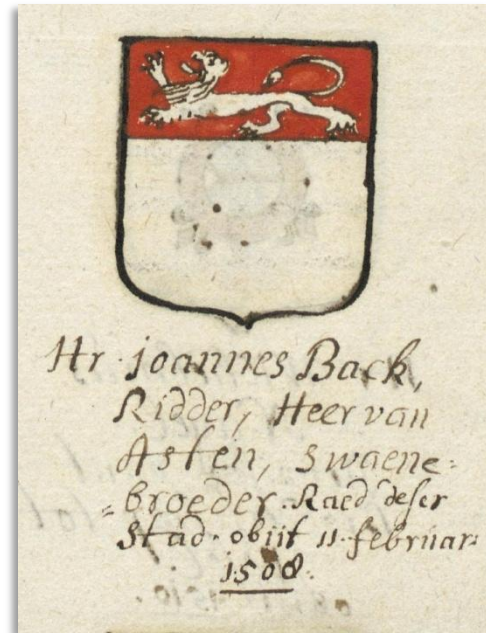 Hr. joannes Back,
Ridder, Heer van
Asten, swaene=
=broeder. Raed deser
stad. obijt 11. februar:
1508.